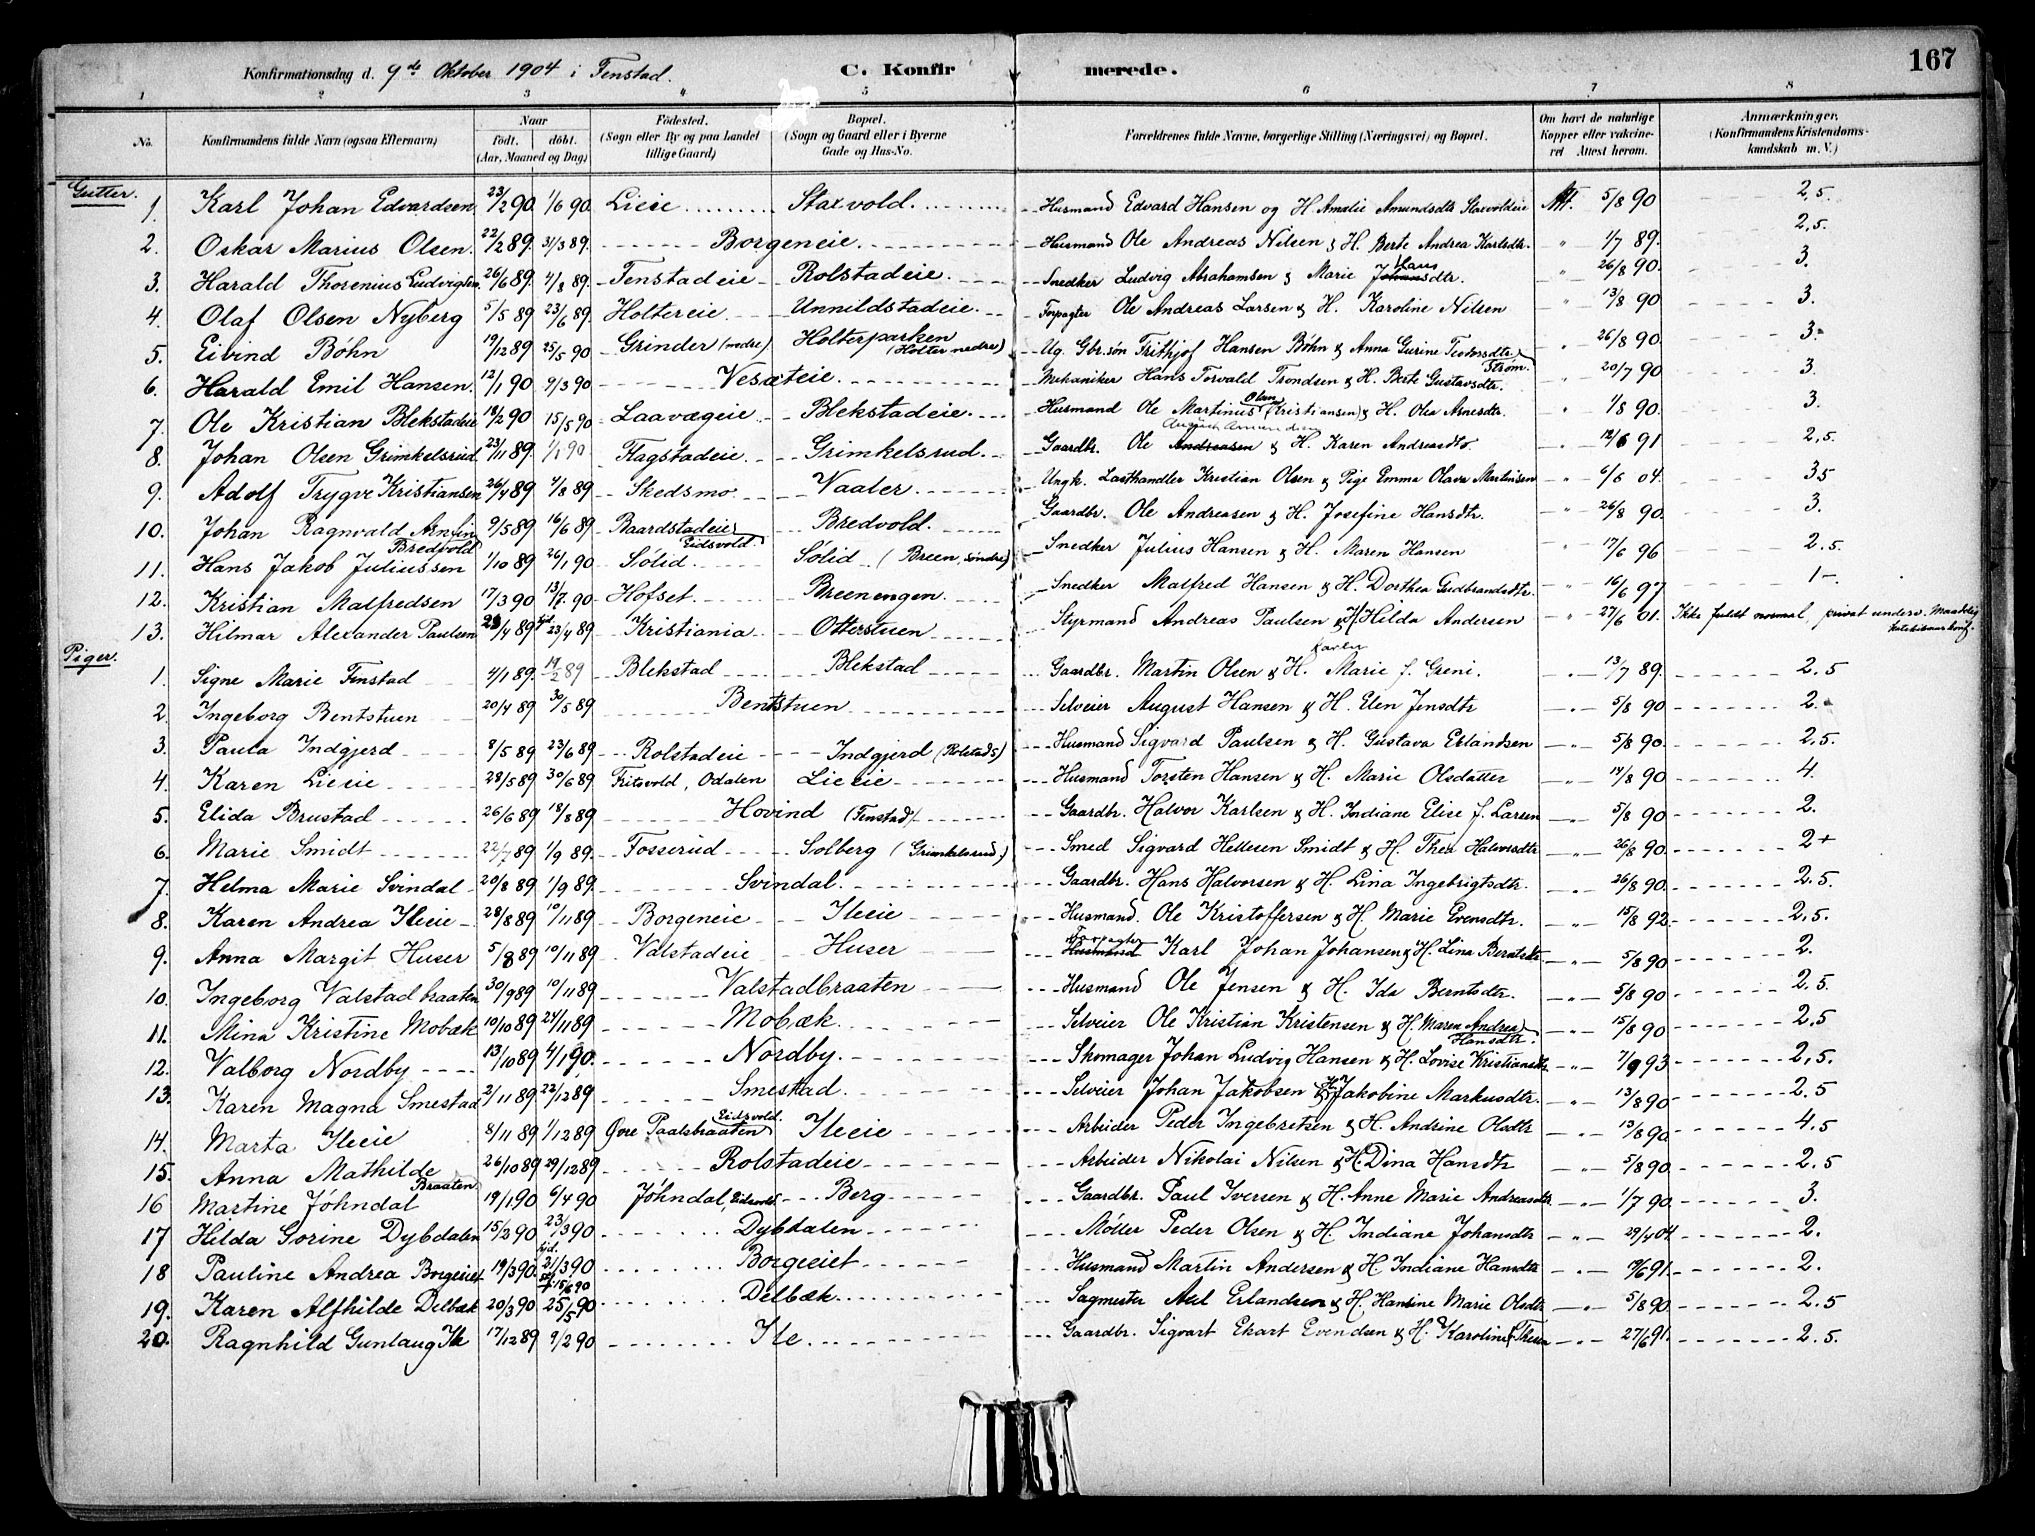 167
Konfirmationsdag d. 9de Oktober 1904 i Fenstad.
C. Konfirmerede.
1 2 3 4 5 6 7 8
No. Konfirmandens fulde Navn (ogsaa Efternavn) Naar født. døbt. (Aar, Maaned og Dag) Fødested. (Sogn eller By og paa Landet tillige Gaard) Bopæl. (Sogn og Gaard eller i Byerne Gade og Hus-No. Forældrenes fulde Navne, borgerlige Stilling (Næringsvei) og Bopæl. Om havt de naturlige Kopper eller vakcineret Attest herom. Anmærkninger. (Konfirmandens Kristendomskundskab m. V.)
Gutter.
1. Karl Johan Edvardsen 23/2 90 1/6 90 Lieie Staxvold. Husmand Edvard Hansen og H. Amalie Amundsdtr Staxvoldeie Att. 5/8 90 2,5.
2. Oskar Marius Olsen. 22/2 89. 31/3 89. Borgeneie. Husmand Ole Andreas Nilsen & H. Berte Andrea Karlsdtr. " 1/7 89. 2,5.
3. Harald Thorenius Ludvigsen 26/6 89. 4/8 89. Fenstadeie Rolstadeie. Snedker Ludvig Abrahamsen & Marie Hansdtr. " 26/8 90. 3.
4. Olaf Olsen Nyberg 5/5 89 23/6 89. Holtereie. Unnildstadeie. Forpagter Ole Andreas Larsen & H. Karoline Nilsen " 13/8 90 3.
5. Eivind Bøhn 19/12 89 25/5 90 Grinder (nedre) Holterparken (Holter nedre) Ug. Gbr.søn Frithjof Hansen Bøhn & Anna Gurine Teodorsdtr Strøm. " 26/8 90. 3.
6. Harald Emil Hansen. 12/1 90 9/3 90 Vesæteie. Mekaniker Hans Torvald Trondsen & H. Berte Gustavsdtr. " 20/7 90 3.
7. Ole Kristian Blekstadeie 18/2 90 15/5 90 Laavægeie Blekstadeie. Husmand Ole Martinus Olsen (Kristiansen) & H. Olea Arnesdtr. " 1/8 90. 3.
8. Johan Olsen Grimkelsrud 23/11 89. 1/1 90 Flagstadeie. Grimkelsrud. Gaardbr. Ole Andreasen August Amundsen & H. Karen Andreasdtr. " 12/6 91 2,5.
9. Adolf Trygve Kristiansen 26/4 89 4/8 89. Skedsmo Vaaler. Ungk. Lasthandler Kristian Olsen & Pige Emma Olava Martinsen " 6/6 04. 3,5
10. Johan Ragnvald Arnfin Bredvold 9/5 89 16/6 89. Baardstadeie Eidsvold. Bredvold. Gaardbr. Ole Andreasen & H. Josefine Hansdtr. " 26/8 90. 3.
11. Hans Jakob Juliussen 1/10 89 26/1 90 Sólid Sólid (Breen, søndre) Snedker Julius Hansen & H. Maren Hansen " 17/6 96 2,5.
12. Kristian Malfredsen 17/3 90 13/7 90 Hofset. Breenengen. Snedker Malfred Hansen & H. Dorthea Gudbrandsdtr. " 16/6 97 1-.
13. Hilmar Alexander Paulsen 23/4 89 hjd. 23/4 89. Kristiania Otterstuen Styrmand Andreas Paulsen & H. Hilda Andersen " 27/6 01. Ikke fuldt normal, privat underv. Maadelig katekismuskonf.
Piger.
1. Signe Marie Fenstad 4/1 89. 17/2 89 Blekstad Blekstad Gaardbr. Martin Olsen & H. Karen Marie f. Greni. " 13/7 89. 2,5
2. Ingeborg Bentstuen 20/4 89 30/5 89 Bentstuen Selveier August Hansen & H. Elen Jensdtr " 5/8 90 2.
3. Paula Indgjerd 8/5 89 23/6 89. Rolstadeie Indgjerd (Rolstads) Husmand Sigvard Paulsen & H. Gustava Erlandsen " 5/8 90. 2,5.
4. Karen Lieeie 28/5 89 30/6 89. Fritsvold, Odalen Lieeie Husmand Torsten Hansen & H. Marie Olsdatter " 14/8 90 4.
5. Elida Brustad 26/6 89 18/8 89 Hovind (Fenstad). Gaardbr. Halvor Karlsen & H. Indiane Elise f. Larsen " 5/8 90 2.
6. Marie Smidt 22/7 89 1/9 89. Fosserud Solberg (Grimkelsrud.) Smed Sigvard Hellesen Smidt & H. Thea Halvorsdtr " 26/8 90. 2+
7. Helma Marie Svindal 20/8 89 1/9 89. Svindal. Gaardbr. Hans Halvorsen & H. Lina Ingebrigtsdtr. " 26/8 90. 2,5.
8. Karen Andrea Ileeie 28/8 89 10/11 89 Borgeneie Ileeie Husmand. Ole Kristoffersen & H. Marie Evensdtr. " 15/8 92. 2,5.
9. Anna Margit Huser 5/8 89 10/11 89 Valstadeie Huser Husmand Forpagter Karl Johan Johansen & H. Lina Berntsdtr " 5/8 90 2.
10. Ingeborg Valstadbraaten 30/9 89 10/11 89 Valstadbraaten Husmand Ole Jensen & H. Ida Berntsdtr. " 5/8 90 2,5.
11. Mina Kristine Mobæk 10/10 89 24/11 89 Mobæk. Selveier Ole Kristian Kristensen & H. Maren Andrea Hansdtr. " 15/8 90 2,5
12. Valborg Nordby 13/10 89 4/1 90. Nordby. Skomager Johan Ludvig Hansen & H. Lovise Kristiansdtr. " 7/9 93 2,5.
13. Karen Magna Smestad 2/11 89 22/12 89 Smestad Selveier Johan Jakobsen & H. Jakobine Markusdtr. " 13/8 90 2,5
14. Marta Ileeie 8/11 89 1/12 89 Øvre Paalsbraaten Eidsvold. Ileeie Arbeider Peder Ingebretsen & H. Andrine Olsdtr " 13/8 90 4,5
15. Anna Mathilde Braaten 26/10 89 29/12 89 Rolstadeie Arbeider Nikolai Nilsen & H. Dina Hansdtr " 5/8 90. 2,5
16 Martine Jøhndal 19/1 90 6/4 90 Jøhndal, Eidsvold Berg Gaardbr. Paul Iversen & H. Anne Marie Andreasdtr " 1/7 90. 3.
17 Hilda Sorine Dybdalen 15/2 90 23/3 90 Dybdalen Møller Peder Olsen & H. Indiane Johansdtr " 29/4 04. 2.
18 Pauline Andrea Borgeiet 19/3 90 hjd. 21/3 90 15/6 90 Borgeiet Husmand Martin Andersen & H. Indiane Hansdtr " 19/6 91. 2.
19. Karen Alfhilde Delbæk 20/3 90 25/5 90 Delbæk Sagmester Aul Erlandsen & H. Hansine Marie Olsdtr " 5/8 90. 2,5
20. Ragnhild Gunlaug Ile 17/12 89 9/2 90 Ile Gaardbr. Sigvart Ekart Evendsen & H. Karoline f. Thesen " 27/6 91. 2,5.